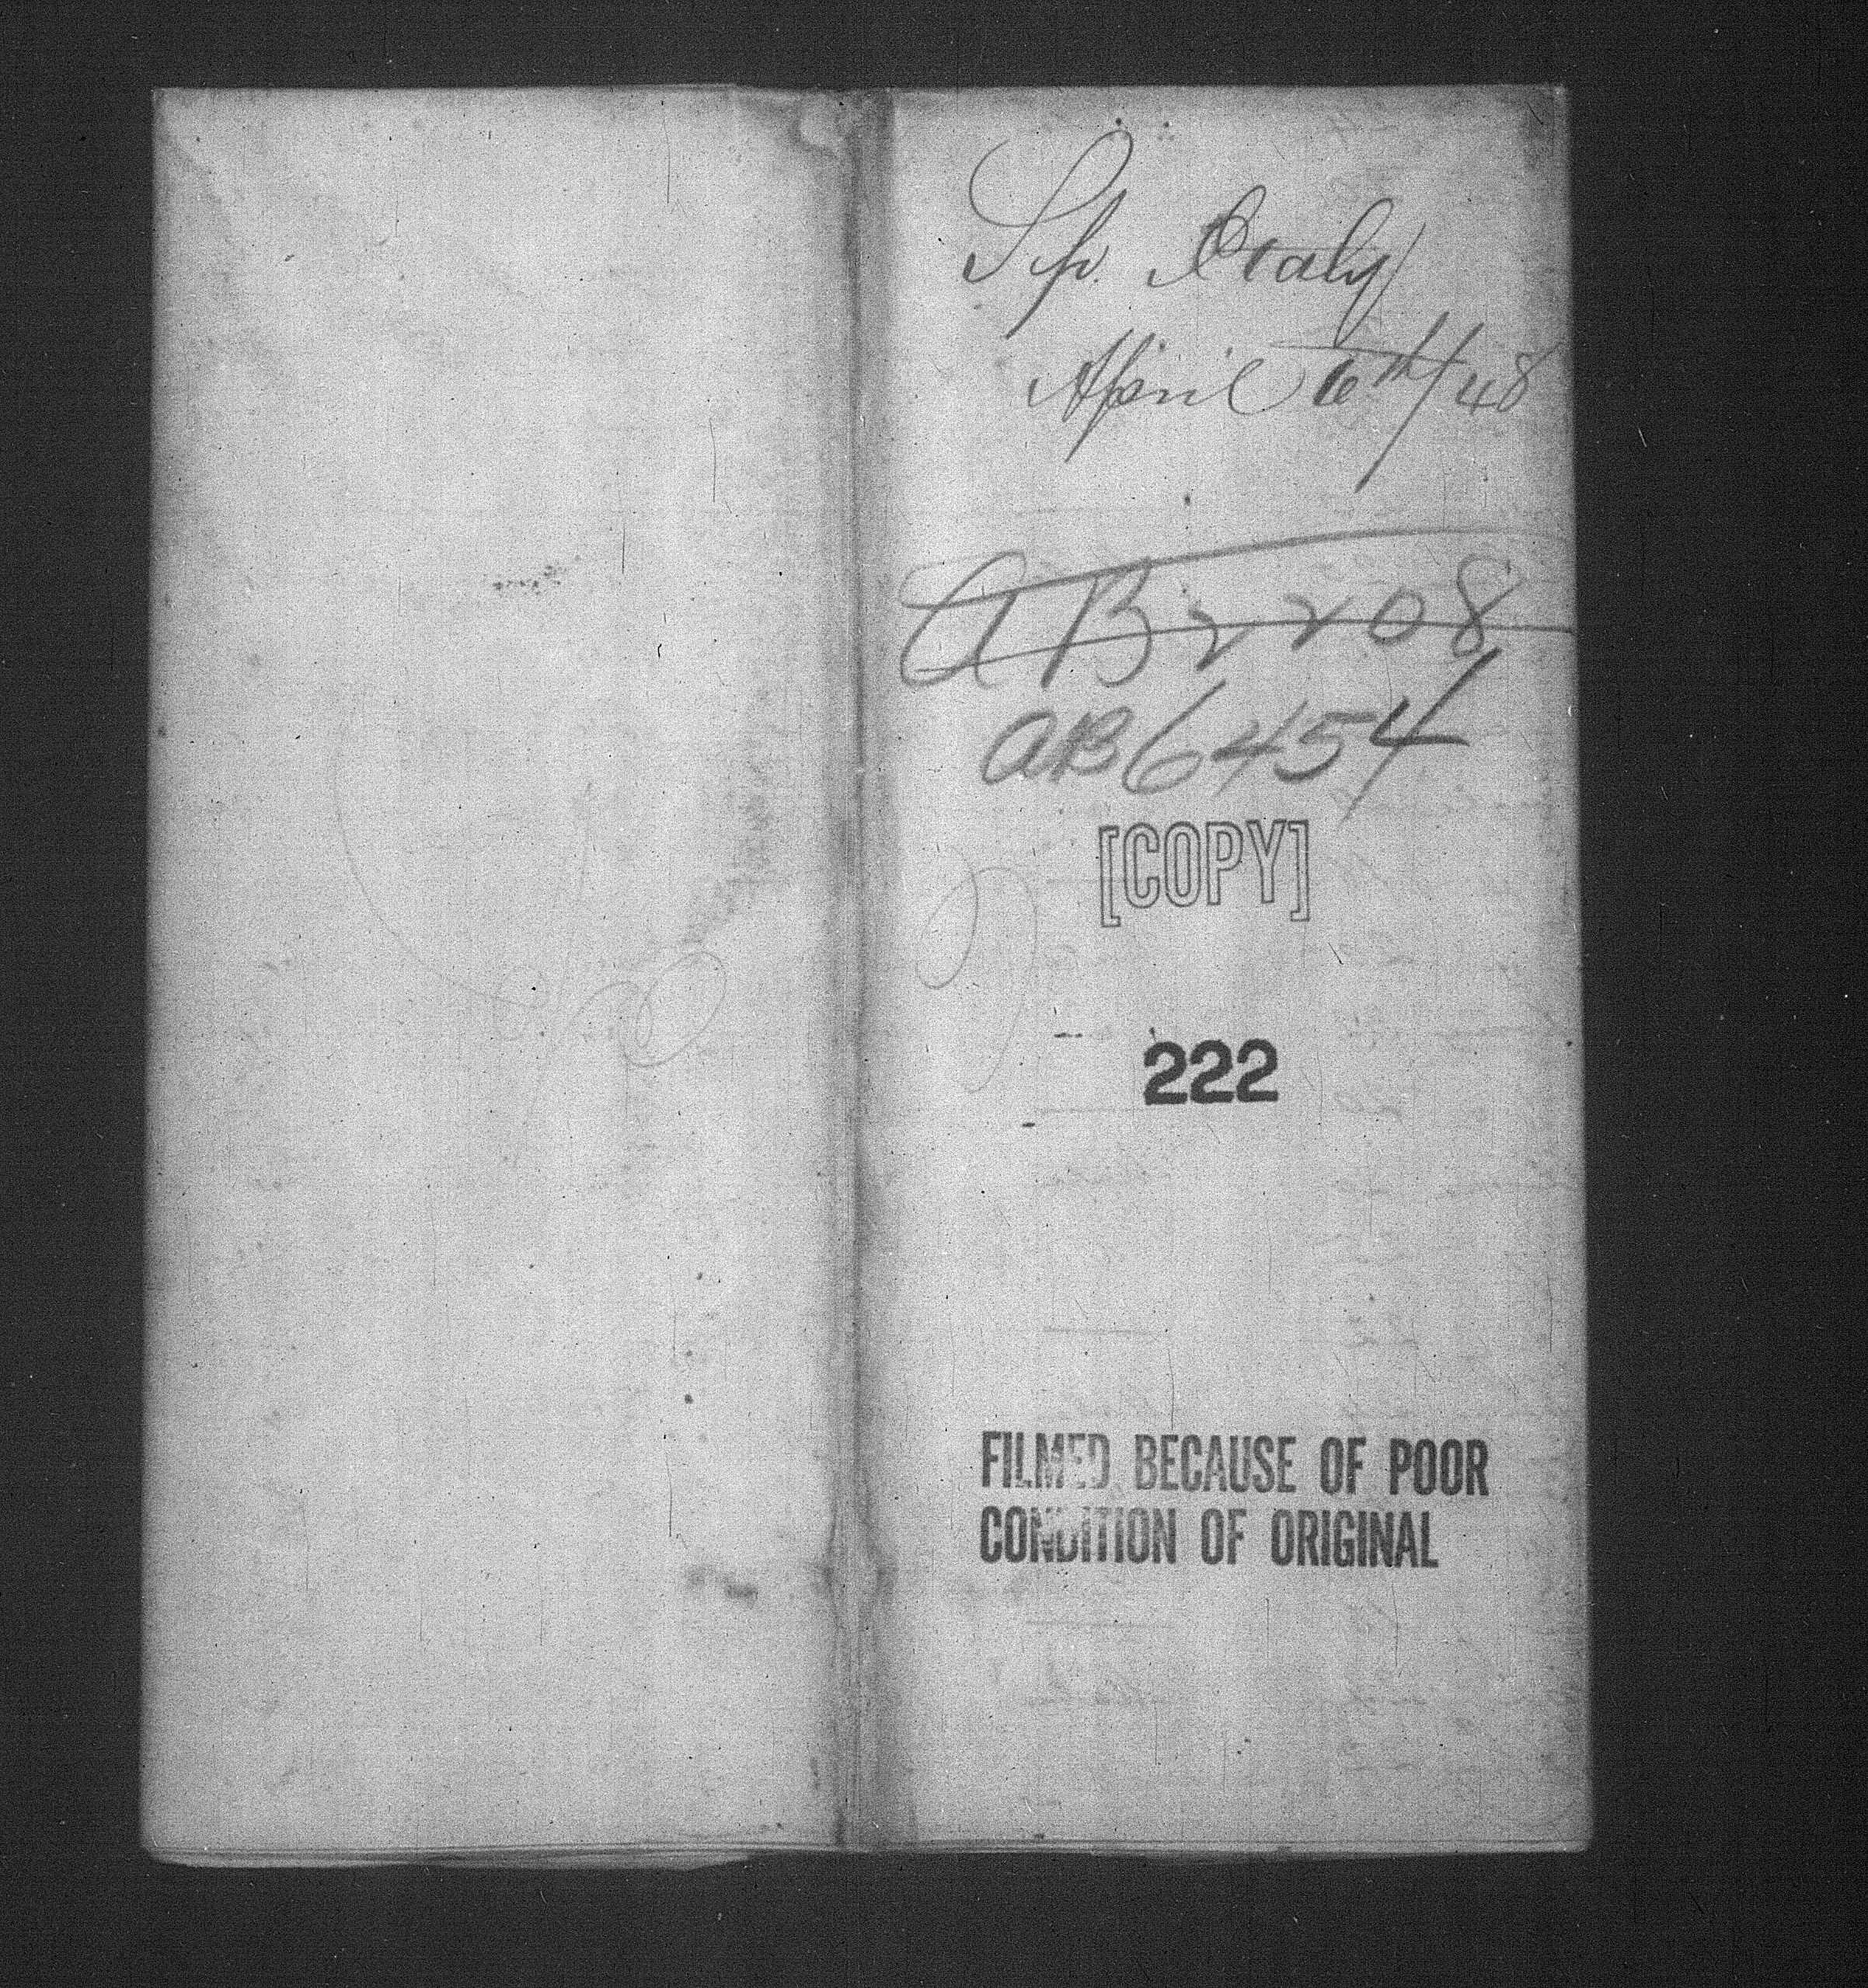 Sp. Craly
April 6th/48
AB 2208
AB6454
[COPY]
222
FILMED BECAUSE OF POOR
CONDITION OF ORIGINAL